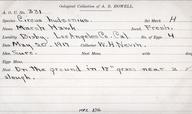 Oological Collection of A. B. HOWELL.
A. O. U. No. 331 Set Mark H
Species, Circus hudsonius.
Name, Marsh Hawk Incub. Fresh.
Locality, Bixby, Los Angeles Co. Cal. No. of Eggs 4
Date, May 20, 1917 Collector
Meas. Size, Nest Meas. with
Eggs Meas.
On the ground in 12" grass near a
slough.